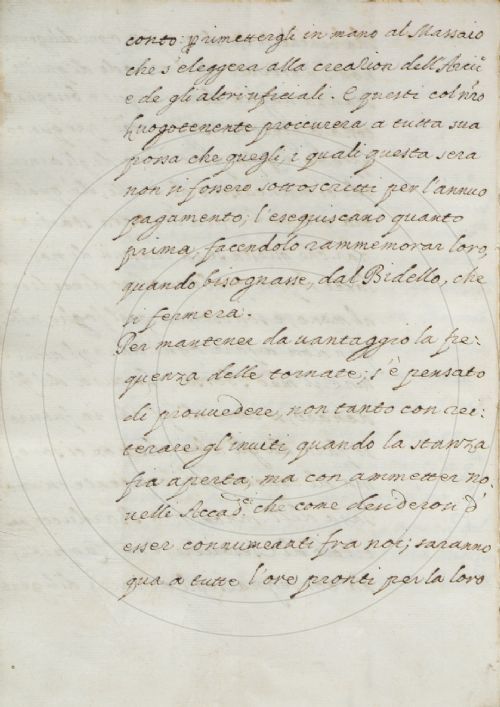 conto: p rimettergli in mano al Massaio
che s'eleggera alla creazion dell'Arciº
e de gli altri uficiali. E questi col nro
Luogotenente proccurera a tutta sua
possa che quegli, i quali questa sera
non si fossero sottoscritti per l'annuo
pagamento, l'eseguiscano quanto
prima, facendolo rammemorar loro,
quando bisognasse, dal Bidello, che
si fermera.
Per mantener da vantaggio la fre-
quenza delle tornate; s'è pensato
di provvedere, non tanto con rei-
terare gl'inviti, quando la stanza
fia aperta, ma con ammetter no-
velli Accad.ᶜⁱ che come desiderosi d'
esser connumerati fra noi; saranno
qua a tutte l'ore pronti per la loro